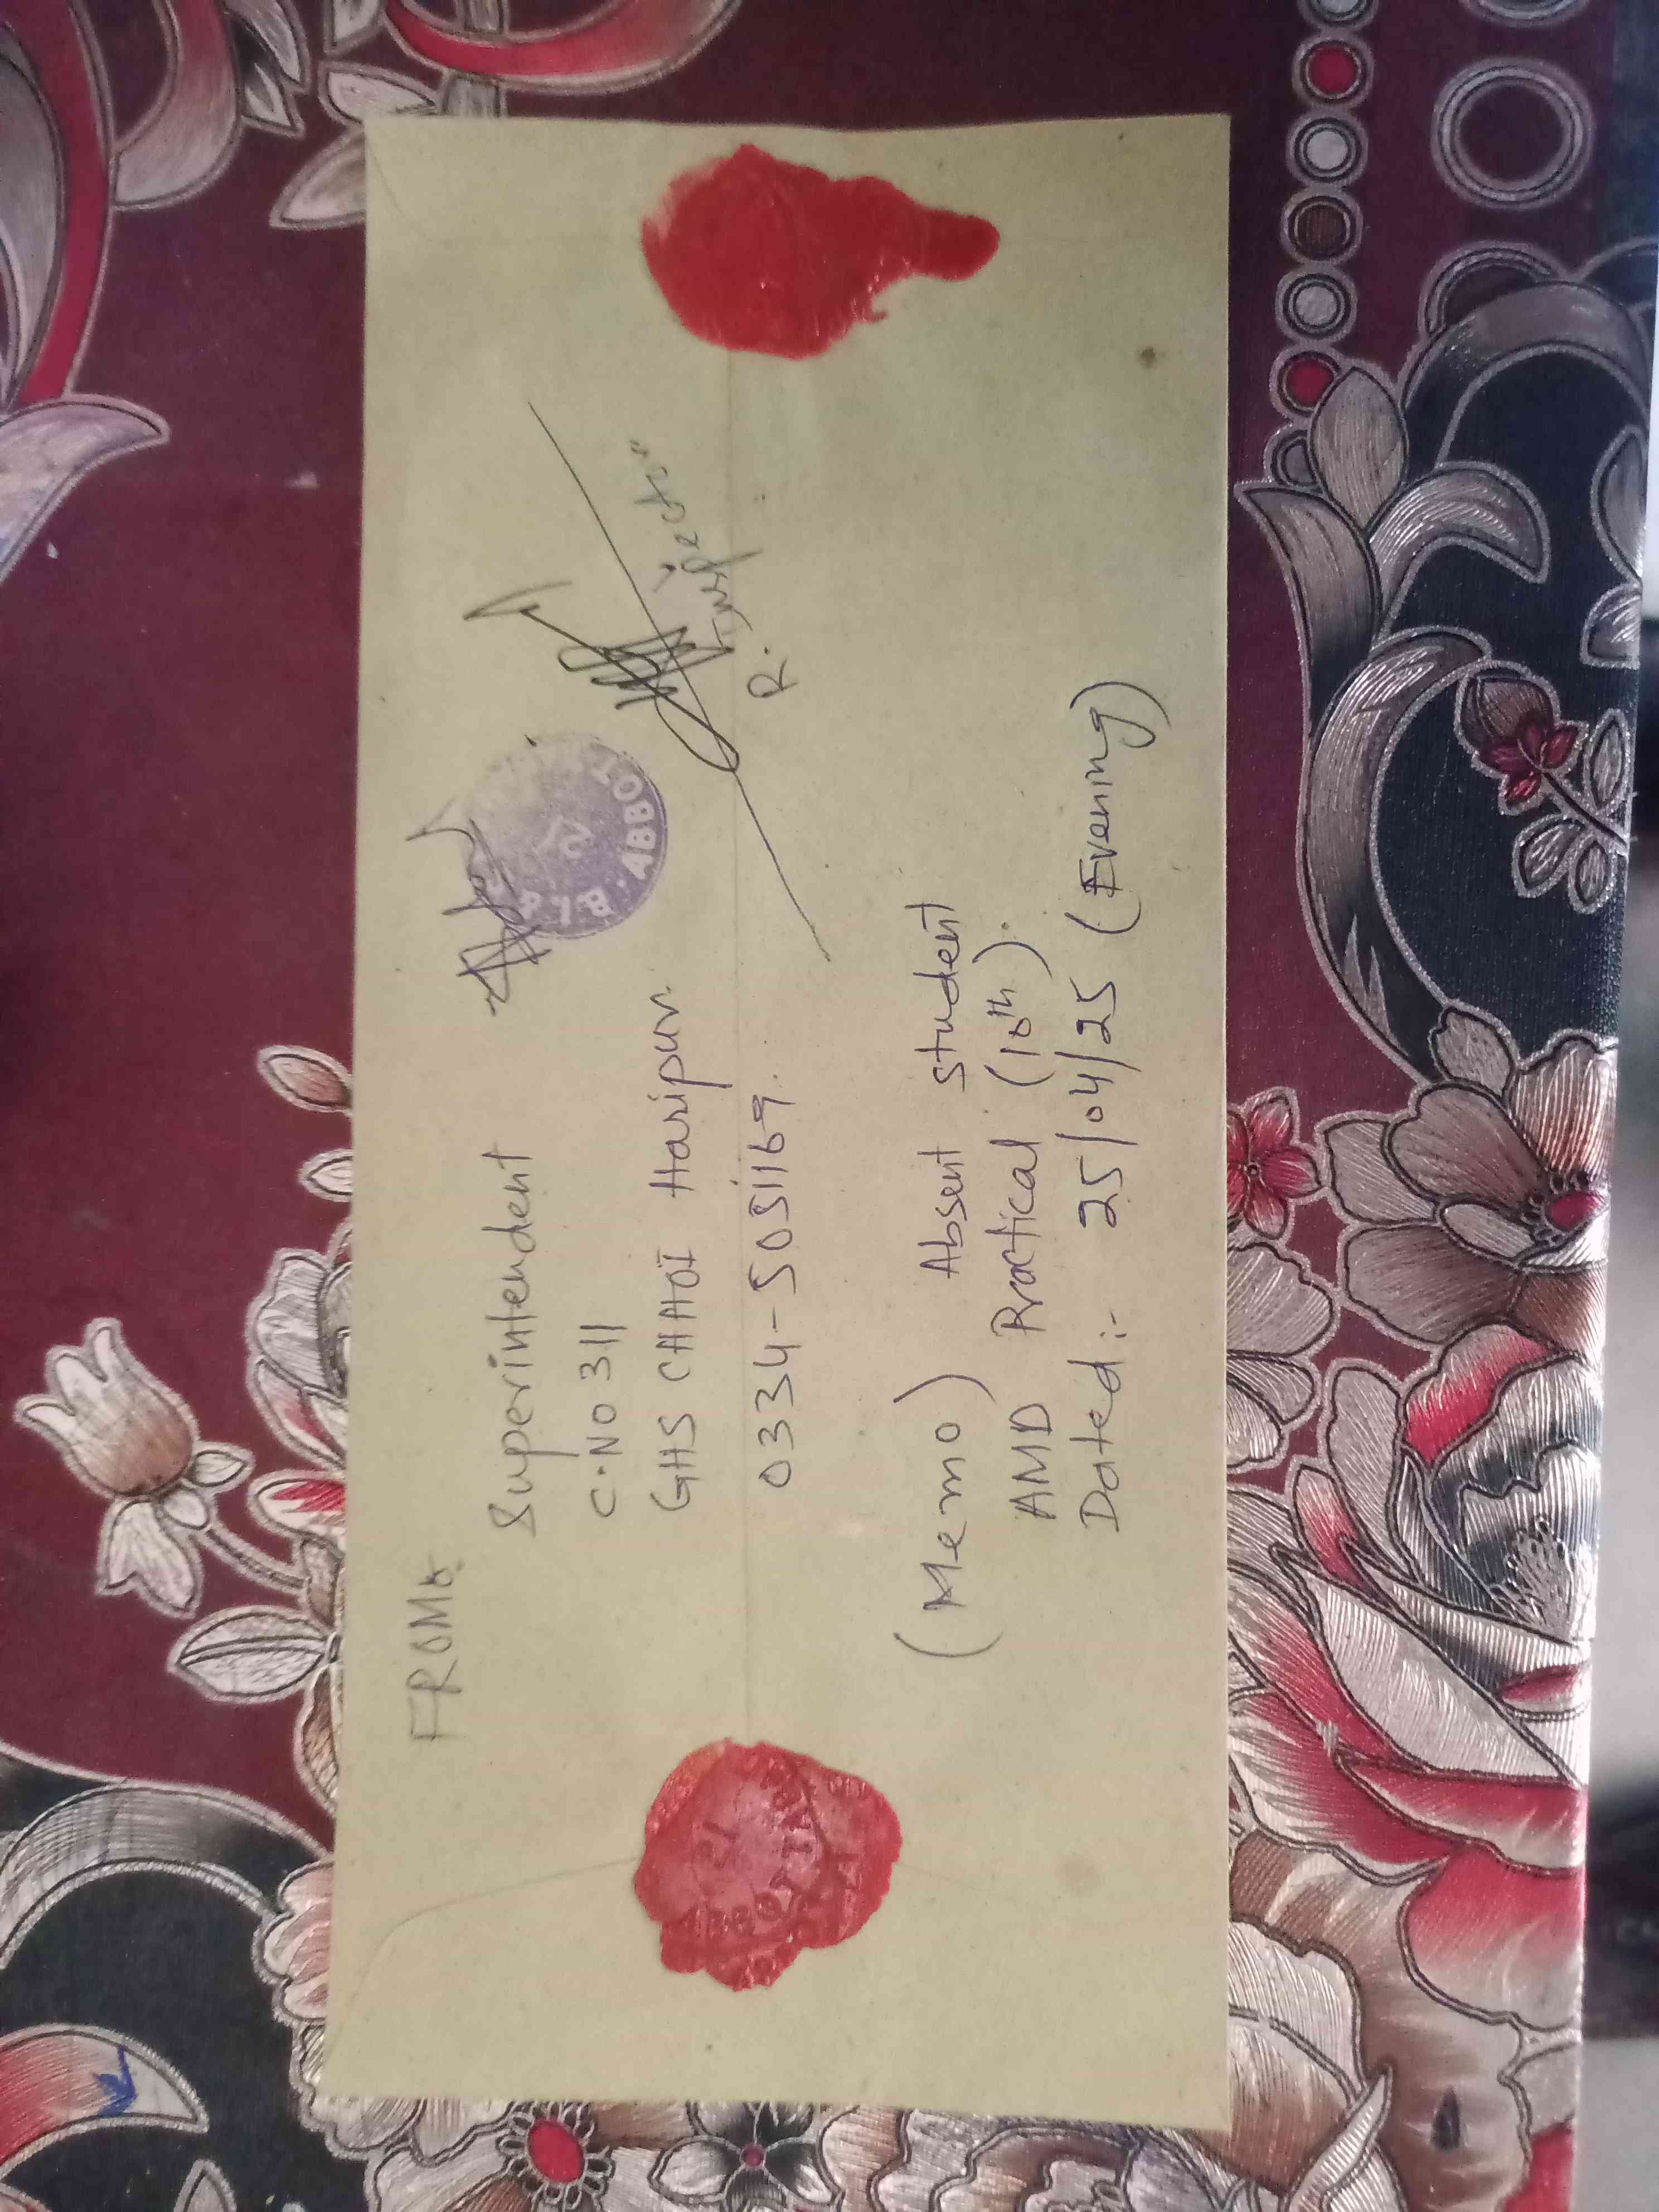 FROM:
Superintendent
C.No 311
GHS CHHOI Haripur.
0334-5051169.
R. Inspector
B.I.S ABBOT
(Memo) Absent student
AMD Practical (10th).
Dated:- 25/04/25 (Evening)
21
ABBOTTA